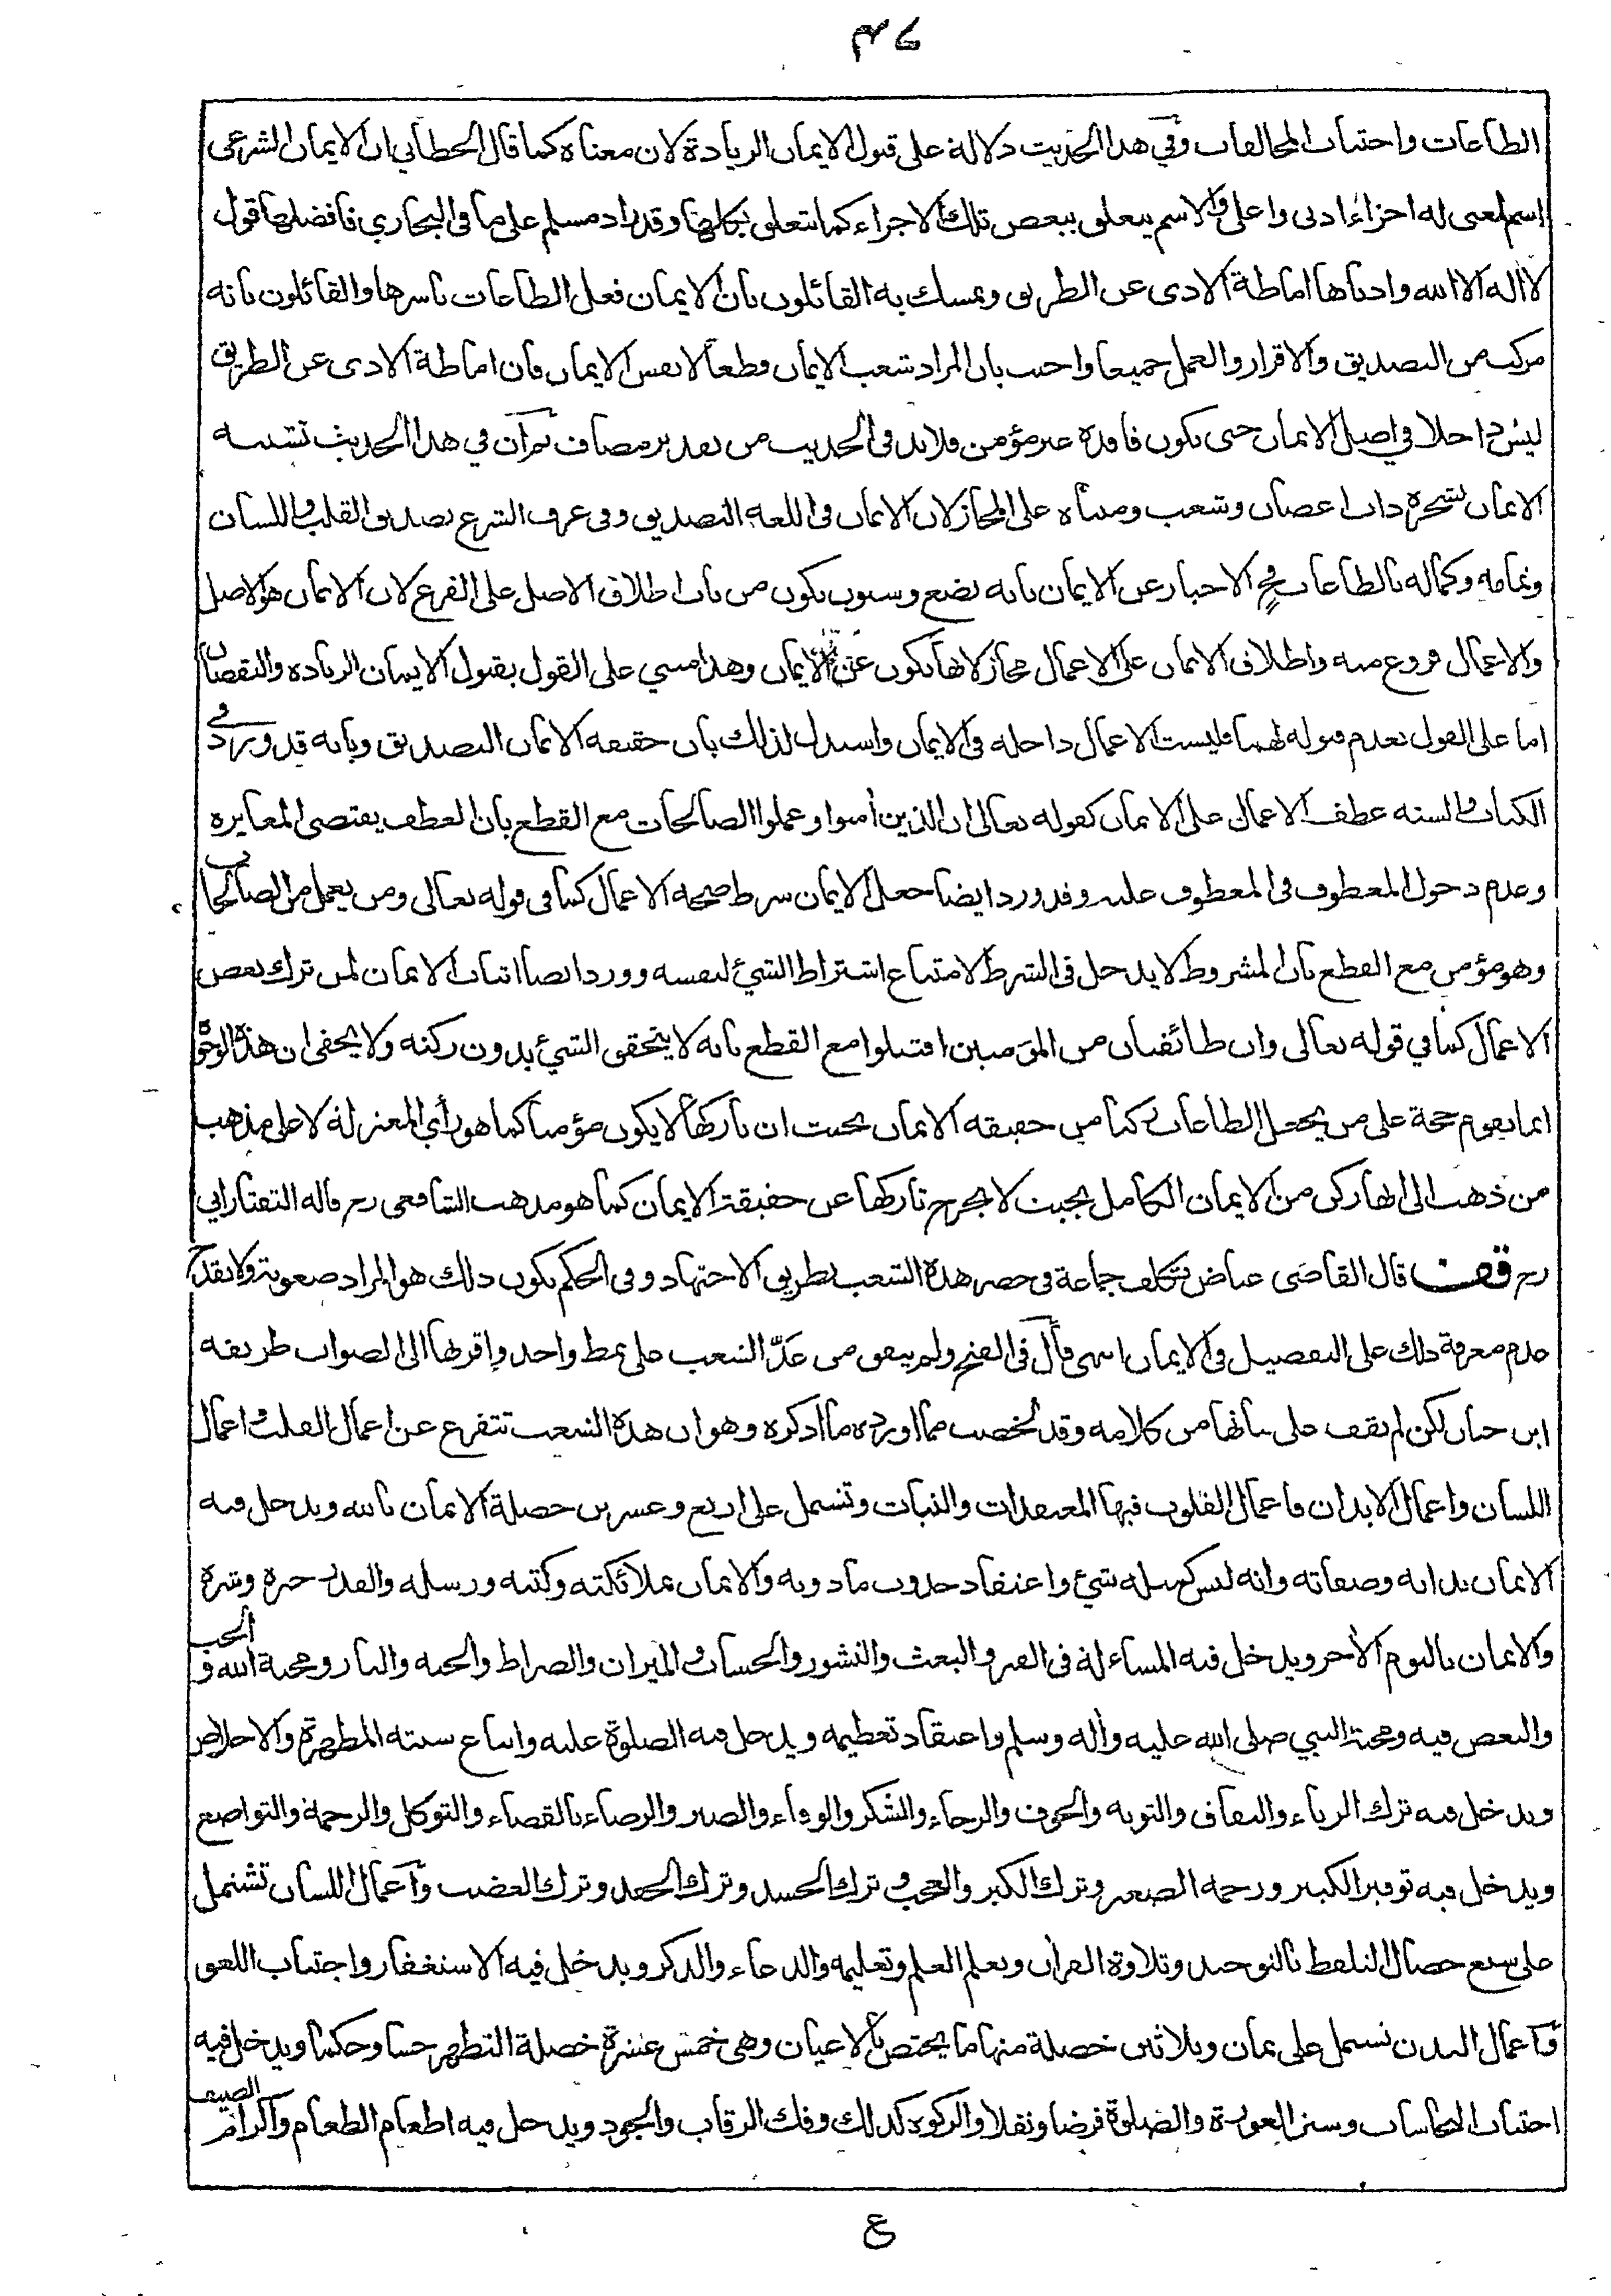 ٣٤
الطاعات واجتناب المخالفات وفي هذا الحديث دلالة على قبول الايمان الزيادة لان معناه كما قال الخطابي ان الايمان الشرعي
اسم لمعنى له اجزاء ادنى واعلى والاسم يتعلق ببعض تلك الاجزاء كما يتعلق بكلها وقد زاد مسلم على ما في البخاري فافضلها قول
لا اله الا الله وادناها اماطة الاذى عن الطريق وتمسك به القائلون بان الايمان فعل الطاعات باسرها والقائلون بانه
مركب من التصديق والاقرار والعمل جميعا واجيب بان المراد شعب الايمان قطعا لا نفس الايمان فان اماطة الاذى عن الطريق
ليس داخلا في اصل الايمان حتى يكون فاقده غير مؤمن فلابد في الحديث من تقدير مضاف ثم ان في هذا الحديث تشبيه
الايمان بشجرة ذات اغصان وشعب ومبناه على المجاز لان الايمان في اللغه التصديق وفي عرف الشرع تصديق القلب واللسان
وتمامه وكماله بالطاعات فح الاخبار عن الايمان بانه بضع وستون يكون من باب اطلاق الاصل على الفرع لان الايمان هو الاصل
والاعمال فروع منه واطلاق الايمان على الاعمال مجاز لانها تكون عن الايمان وهذا مبني على القول بقبول الايمان الزياده والنقصان
اما على القول بعدم قبوله لهما فليست الاعمال داخله في الايمان واستدل لذلك بان حقيقه الايمان التصديق وبانه قد ورد في
الكتاب والسنه عطف الاعمال على الايمان كقوله تعالى ان الذين أمنوا وعملوا الصالحات مع القطع بان العطف يقتضى المغايره
وعدم دخول المعطوف في المعطوف عليه وقد ورد ايضا جعل الايمان شرط صحه الاعمال كما في قوله تعالى ومن يعمل من الصالحات
وهو مؤمن مع القطع بان المشروط لا يدخل في الشرط لامتناع اشتراط الشيئ لنفسه وورد ايضا اثبات الايمان لمن ترك بعض
الاعمال كما في قوله تعالى وان طائفتان من المؤمنين اقتتلوا مع القطع بانه لا يتحقق الشيئ بدون ركنه ولا يخفى ان هذه الوجوه
انما تقوم حجة على من يجعل الطاعات ركنا من حقيقه الايمان بحيث ان تاركها لا يكون مؤمنا كما هو رأي المعتزلة لا على مذهب
من ذهب الى انها ركن من الايمان الكامل بحيث لا يخرج تاركها عن حقيقة الايمان كما هو مذهب الشافعى رح قاله التفتازاني
رح قف قال القاضى عياض تكلف جماعة في حصر هذه الشعب بطريق الاجتهاد وفى الحكم بكون ذلك هو المراد صعوبة ولا يقدح
عدم معرفة ذلك على التفصيل في الايمان انتهى قال في الفتح ولم يتفق من عدّ الشعب على نمط واحد واقربها الى الصواب طريقه
ابن حبان لكن لم نقف على بيانها من كلامه وقد لخصت مما اورده ما اذكره وهو ان هذه الشعب تتفرع عن اعمال القلب واعمال
اللسان واعمال الابدان فاعمال القلوب فيها المعتقدات والنيات وتشتمل على اربع وعشرين خصلة الايمان بالله ويدخل فيه
الايمان بذاته وصفاته وانه ليس كمثله شيئ واعتقاد حدوث ما دونه والايمان بملائكته وكتبه ورسله والقدر خيره وشره
والايمان باليوم الأخر ويدخل فيه المساءلة في القبر والبعث والنشور والحساب والميزان والصراط والجنه والنار ومحبة الله والحب
والبغض فيه ومحبة النبي صلى الله عليه وأله وسلم واعتقاد تعظيمه ويدخل فيه الصلوة عليه واتباع سنته المطهرة والاخلاص
ويدخل فيه ترك الرياء والنفاق والتوبه والخوف والرجاء والشكر والوفاء والصبر والرضاء بالقضاء والتوكل والرحمة والتواضع
ويدخل فيه توقير الكبير ورحمه الصغير وترك الكبر والعجب و ترك الحسد وترك الحقد وترك الغضب وأعمال اللسان تشتمل
على سبع خصال التلفظ بالتوحيد وتلاوة القرأن وتعلم العلم وتعليمه والدعاء والذكر ويدخل فيه الاستغفار واجتناب اللغو
وأعمال البدن تشتمل على ثمان وثلاثين خصلة منها ما يختص بالاعيان وهى خمس عشرة خصلة التطهر حسا وحكما ويدخل فيه
اجتناب النجاسات وستر العورة والصلوة فرضا ونفلا والزكوه كذلك وفك الرقاب والجود ويدخل فيه اطعام الطعام واكرام الضيف
ع